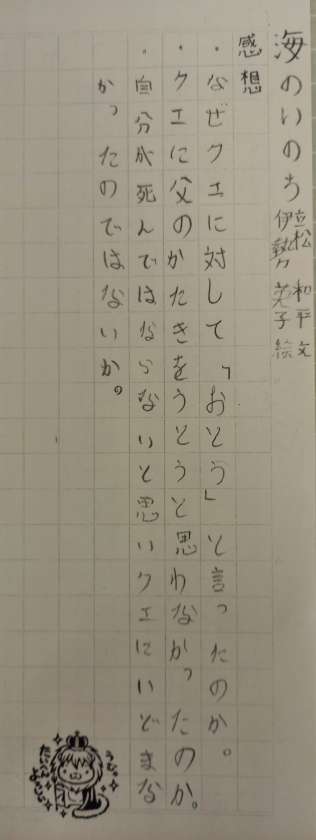 海のいのち
立松 和平 文
伊勢 英子 絵
感想
・なぜクエに対して「おとう」と言ったのか。
・クエに父のかたきをうとうと思わなかったのか。
・自分が死んではならないと思いクエにいどまな
かったのではないか。